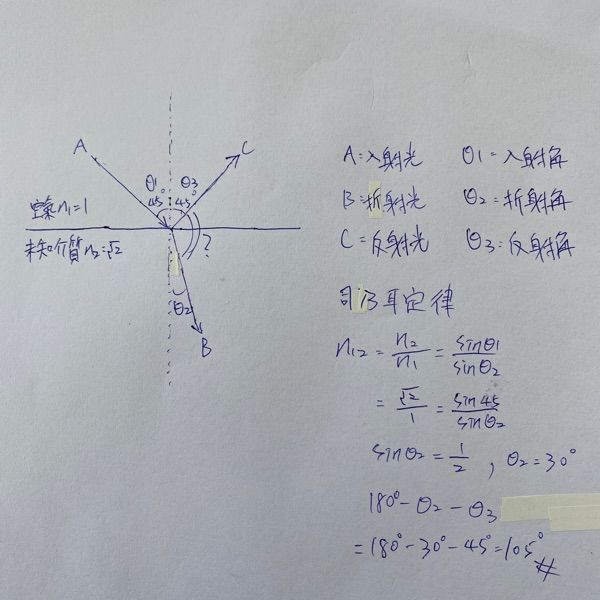 A
C
θ1
θ3
45°
45°
空氣n1=1
未知介質n2=√2
?
θ2
B
A=入射光 θ1=入射角
B=折射光 θ2=折射角
C=反射光 θ3=反射角
司乃耳定律
n12 = n2/n1 = sinθ1/sinθ2
= √2/1 = sin45/sinθ2
sinθ2 = 1/2 , θ2=30°
180°-θ2-θ3
=180°-30°-45°=105° #